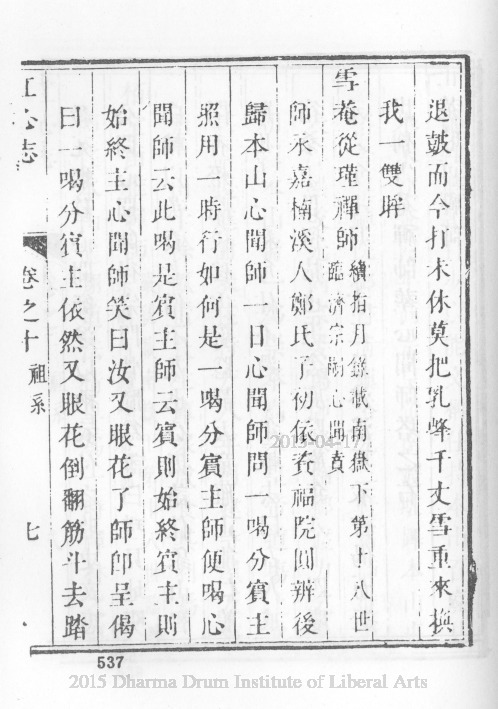 退鼓而今打未休莫把乳峰千丈雪重來撫
我一雙眸
雪菴從瑾禪師
續指月錄載南嶽下第十八世
臨濟宗嗣心聞賁
師永嘉楠溪人鄭氏子幼依資福院圓辨後
歸本山心聞師一日心聞師問一喝分賓主
照用一時行如何是一喝分賓主師便喝心
聞師云此喝是賓主師云賓則始終賓主則
始終主心聞師笑曰汝又眼花了師即呈偈
曰一喝分賓主依然又眼花倒翻筋斗去踏
志
卷之十
祖系
七
537
2015-04-17
2015 Dharma Drum Institute of Liberal Arts